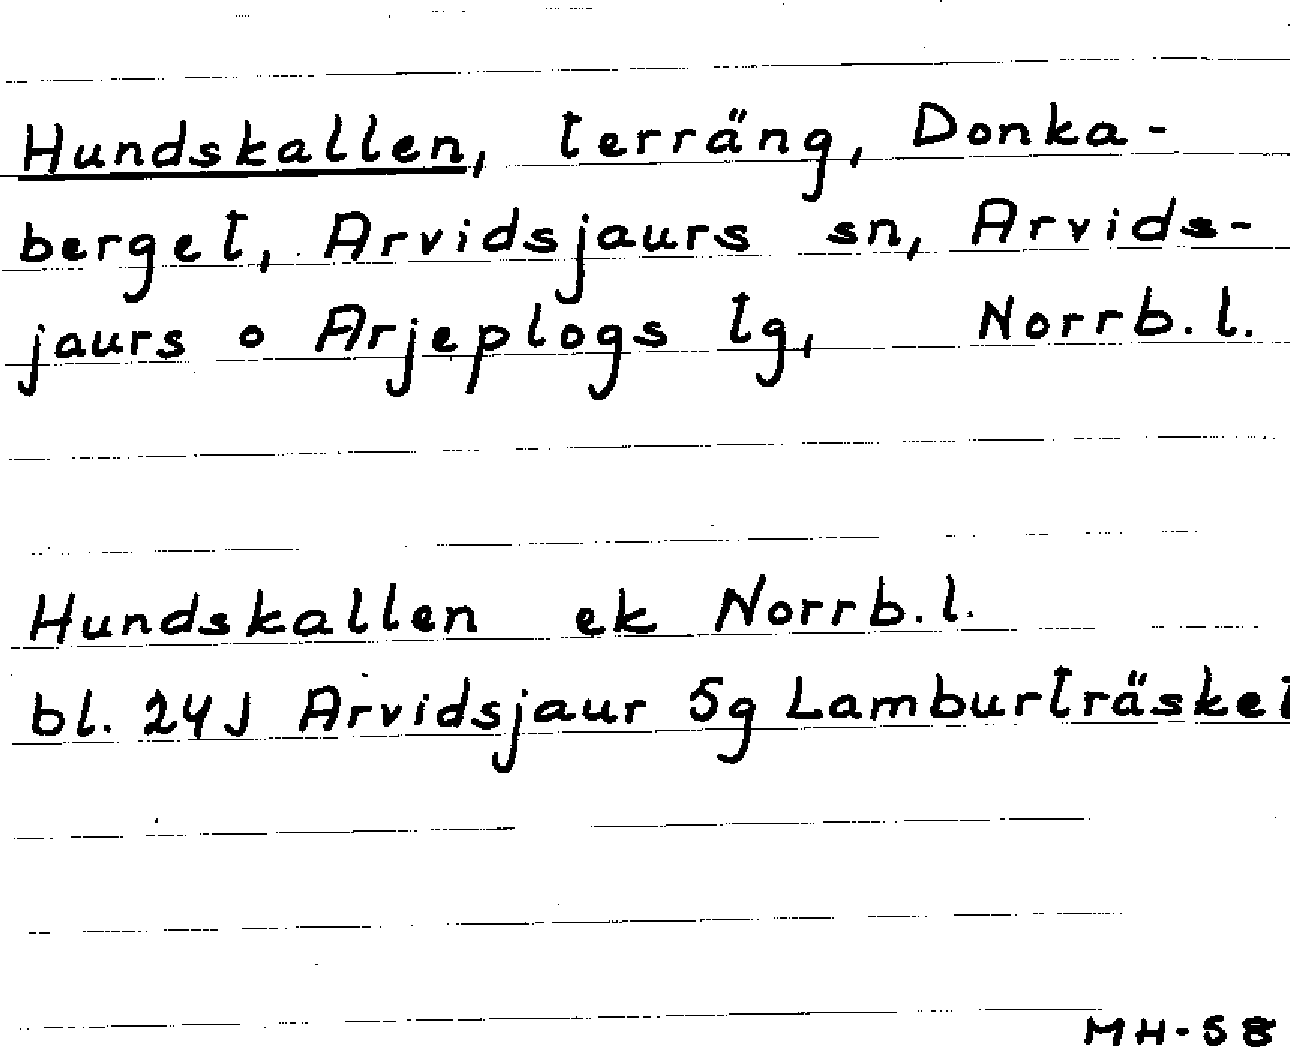 Hundskallen, terräng, Donka-
berget, Arvidsjaurs sn, Arvids-
jaurs o Arjeplogs lg, Norrb. l.
Hundskallen ek Norrb. l.
bl. 24J Arvidsjaur 5g Lamburträsket
MH-58